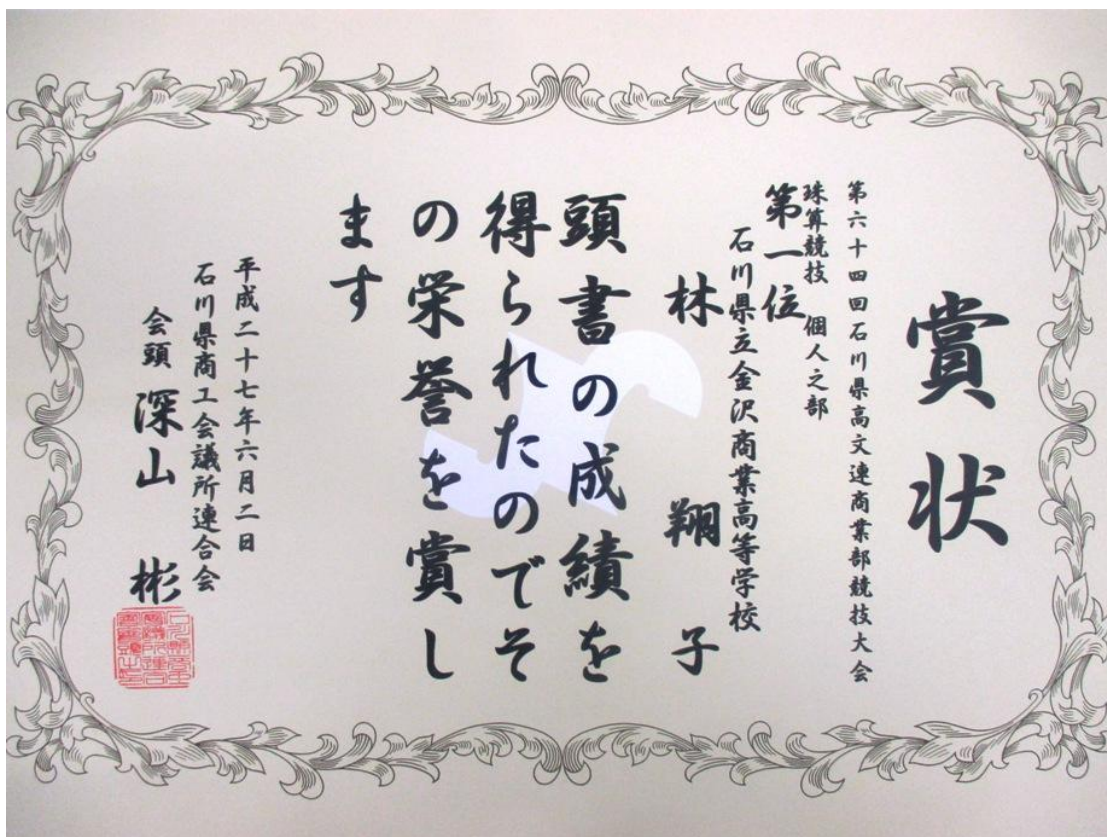 賞状
第六十四回石川県高文連商業部競技大会
珠算競技 個人之部
第一位
石川県立金沢商業高等学校
林 翔子
頭書の成績を
得られたのでそ
の栄誉を賞し
ます
平成二十七年六月二日
石川県商工会議所連合会
会頭 深山 彬